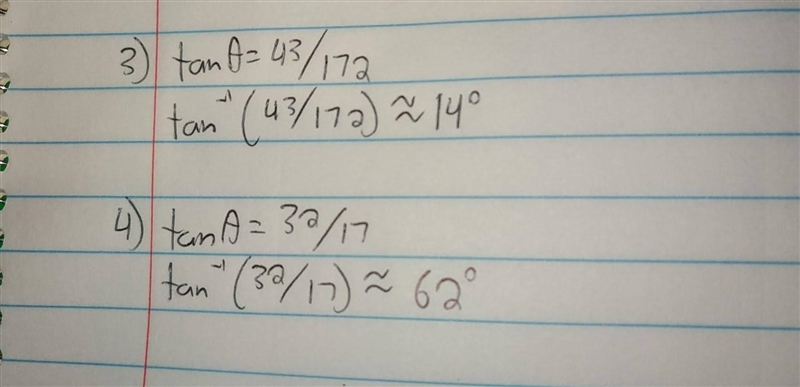 3) tanθ = 43/172
tan⁻¹ (43/172) ≈ 14°
4) tanθ = 32/17
tan⁻¹ (32/17) ≈ 62°